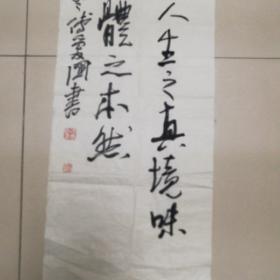 人生之真境味
體之本然
傅爱国書